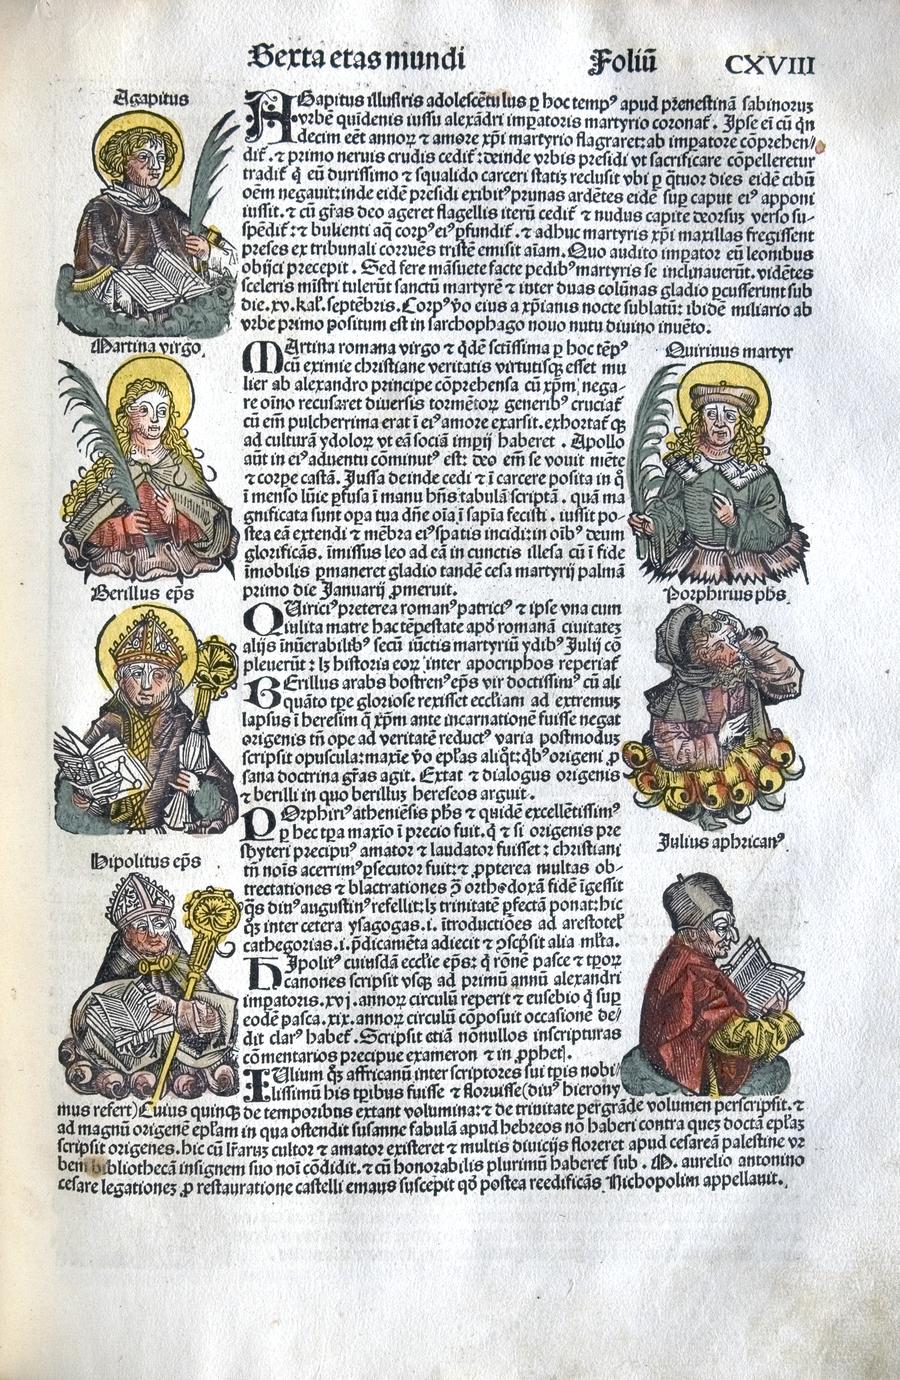 Sexta etas mundi Foliū CXVIII
Agapitus
AGapitus illustris adolescētulus ꝑ hoc tempꝰ apud prenestinā sabinoruꝫ
vrbē quidenis iussu alexādri imꝑatoris martyrio coronať. Ipse eī cū qn̄
decim eēt annoꝝ ⁊ amore xp̄i martyrio flagraret: ab imꝑatore cōprehen/
diť. ⁊ primo neruis crudis cediť: deinde vrbis presidi vt sacrificare cōpelleretur
tradiť q̇ eū durissimo ⁊ squalido carceri statiꝫ reclusit vbi ꝑ q̇tuor dies eidē cibū
oēm negauit: inde eidē presidi exibitꝰ prunas ardētes eidē suꝑ caput eiꝰ apponi
iussit. ⁊ cū gr̄as deo ageret flagellis iterū cediť ⁊ nudus capite deorsuꝫ verso su-
spēdiť: ⁊ bulienti aq̇ corpꝰ eiꝰ ꝑfundiť. ⁊ adhuc martyris xp̄i maxillas fregissent
preses ex tribunali corruēs tristē emisit aīam. Quo audito imꝑator eū leonibus
obijci precepit. Sed fere māsuete facte pedibꝰ martyris se inclinauerūt. vidētes
sceleris mīstri tulerūt sanctū martyrē ⁊ inter duas colūnas gladio ꝑcusserunt sub
die. xv. kal̄. septēbris. Corpꝰ v̇o eius a xp̄ianis nocte sublatū: ibidē miliario ab
vrbe primo positum est in sarchophago nouo nutu diuino inuēto.
Martina virgo.
Quirinus martyr
MArtina romana virgo ⁊ q̇dē sctīssima ꝑ hoc tēpꝰ
cū eximie christiane veritatis virtutisqꝫ esset mu
lier ab alexandro principe cōprehensa cū xp̄m nega-
re oīno recusaret diuersis tormētoꝝ generibꝰ cruciať
cū em̄ pulcherrima erat ī eiꝰ amore exarsit. exhortať qꝫ
ad culturā ydoloꝝ vt eā sociā impij haberet. Apollo
aūt in eiꝰ aduentu cōminutꝰ est: deo em̄ se vouit mēte
⁊ corpe castā. Jussa deinde cedi ⁊ ī carcere posita in q̊
ī menso lūie ꝑfusa ī manu hn̄s tabulā scriptā. quā ma
gnificata sunt oꝑa tua dn̄e oīa ī sapīa fecisti. iussit po-
stea eā extendi ⁊ mēbra eiꝰ spatis incidi: in oībꝰ deum
glorificās. īmissus leo ad eā in cunctis illesa cū ī fide
īmobilis ꝑmaneret gladio tandē cesa martyrij palmā
primo die Januarij ꝓmeruit.
Berillus ep̄s
Porphirius ph̄s.
QUiriciꝰ preterea romanꝰ patriciꝰ ⁊ ipse vna cum
Julita matre hac tēpestate apd̄ romanā ciuitateꝫ
alijs īnūerabilibꝰ secū iūctis martyriū ydibꝰ Julij cō
pleuerūt: lꝫ historia eoꝝ inter apocriphos reperiať
BErillus arabs bostrenꝰ ep̄s vir doctissimꝰ cū ali
quāto tp̄e gloriose rexisset eccl̄iam ad extremuꝫ
lapsus ī heresim q̇ xp̄m ante incarnationē fuisse negat
origenis tn̄ ope ad veritatē reductꝰ varia postmoduꝫ
scripsit opuscula: maxīe v̇o ep̄l̄as aliq̄t: q̇bꝰ origeni ꝓ
sana doctrina gr̄as agit. Extat ⁊ dialogus origenis
⁊ berilli in quo berilluꝫ hereseos arguit.
Julius aphricanꝰ
POrphiriꝰ atheniēsis ph̄s ⁊ quidē excellētissimꝰ
ꝑ hec tp̄a maxīo ī precio fuit. q̇ ⁊ si origenis pre
sbyteri precipuꝰ amator ⁊ laudator fuisset: christiani
tn̄ noīs acerrimꝰ ꝑsecutor fuit: ⁊ ꝓpterea multas ob-
trectationes ⁊ blactrationes ɔ̄ orthodoxā fidē īgessit
q̄s diuꝰ augustinꝰ refellit: lꝫ trinitatē ꝑfectā ponat: hic
qꝫ inter cetera ysagogas. i. ītroductiōes ad arestoteľ
cathegorias. i. p̄dicamēta adiecit ⁊ ɔscp̄sit alia ml̄ta.
Hipolitus ep̄s
HIpolitꝰ cuiusdā eccl̄ie ep̄s: q̇ rōnē pasce ⁊ tp̄oꝝ
canones scripsit vsqꝫ ad primū annū alexandri
imꝑatoris. xvj. annoꝝ circulū reperit ⁊ eusebio q̇ suꝑ
eodē pasca. xix. annoꝝ circulū cōposuit occasionē de/
dit clarꝰ habeť. Scripsit etiā nōnullos in scripturas
cōmentarios precipue exameron ⁊ in ꝓphetꝭ.
IUlium qꝫ affricanū inter scriptores sui tp̄is nobi/
lissimū his tp̄ibus fuisse ⁊ floruisse (diuꝰ hierony
mus refert) Cuius quinqꝫ de temporibus extant volumina: ⁊ de trinitate pergrāde volumen perscripsit. ⁊
ad magnū origenē ep̄l̄am in qua ostendit susanne fabulā apud hebreos nō haberi contra queꝫ doctā ep̄l̄aꝫ
scripsit origenes. hic cū lr̄aruꝫ cultor ⁊ amator existeret ⁊ multis diuicijs floreret apud cesareā palestine vr
bem bibliothecā insignem suo noī cōdidit. ⁊ cū honorabilis plurimū habereť sub. M. aurelio antonino
cesare legationeꝫ ꝓ restauratione castelli emaus suscepit qd̄ postea reedificās Nichopolim appellauit.